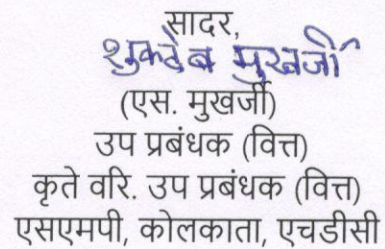 सादर,
शुकदेब मुखर्जी
(एस. मुखर्जी)
उप प्रबंधक (वित्त)
कृते वरि. उप प्रबंधक (वित्त)
एसएमपी, कोलकाता, एचडीसी